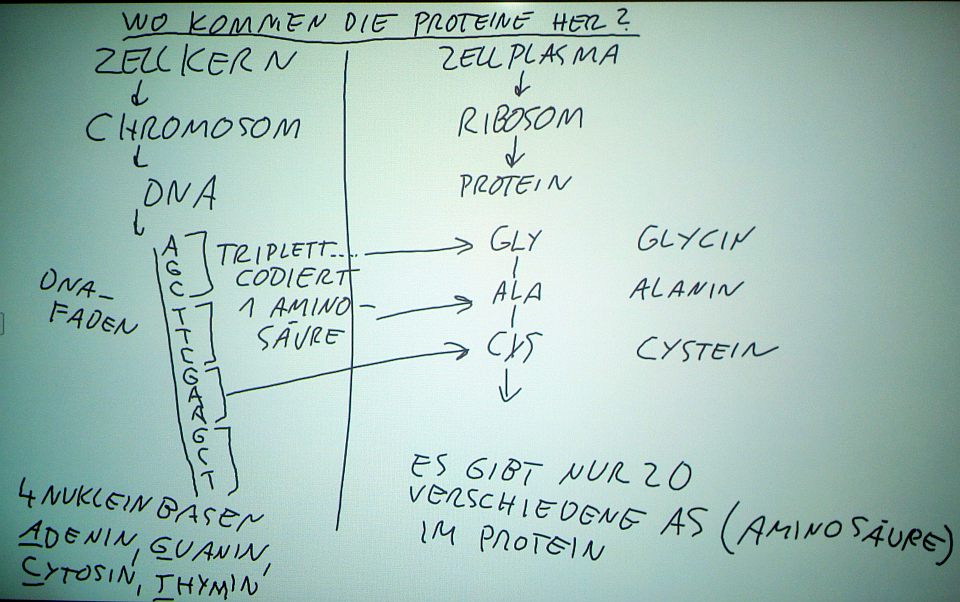 WO KOMMEN DIE PROTEINE HER?
ZELLKERN
CHROMOSOM
DNA
DNA-
FADEN
A
G
C
T
T
C
G
A
A
G
C
T
TRIPLETT....
CODIERT
1 AMINO-
SÄURE
4 NUKLEINBASEN
ADENIN, GUANIN,
CYTOSIN, THYMIN
ZELLPLASMA
RIBOSOM
PROTEIN
GLY GLYCIN
ALA ALANIN
CYS CYSTEIN
ES GIBT NUR 20
VERSCHIEDENE AS (AMINOSÄURE)
IM PROTEIN